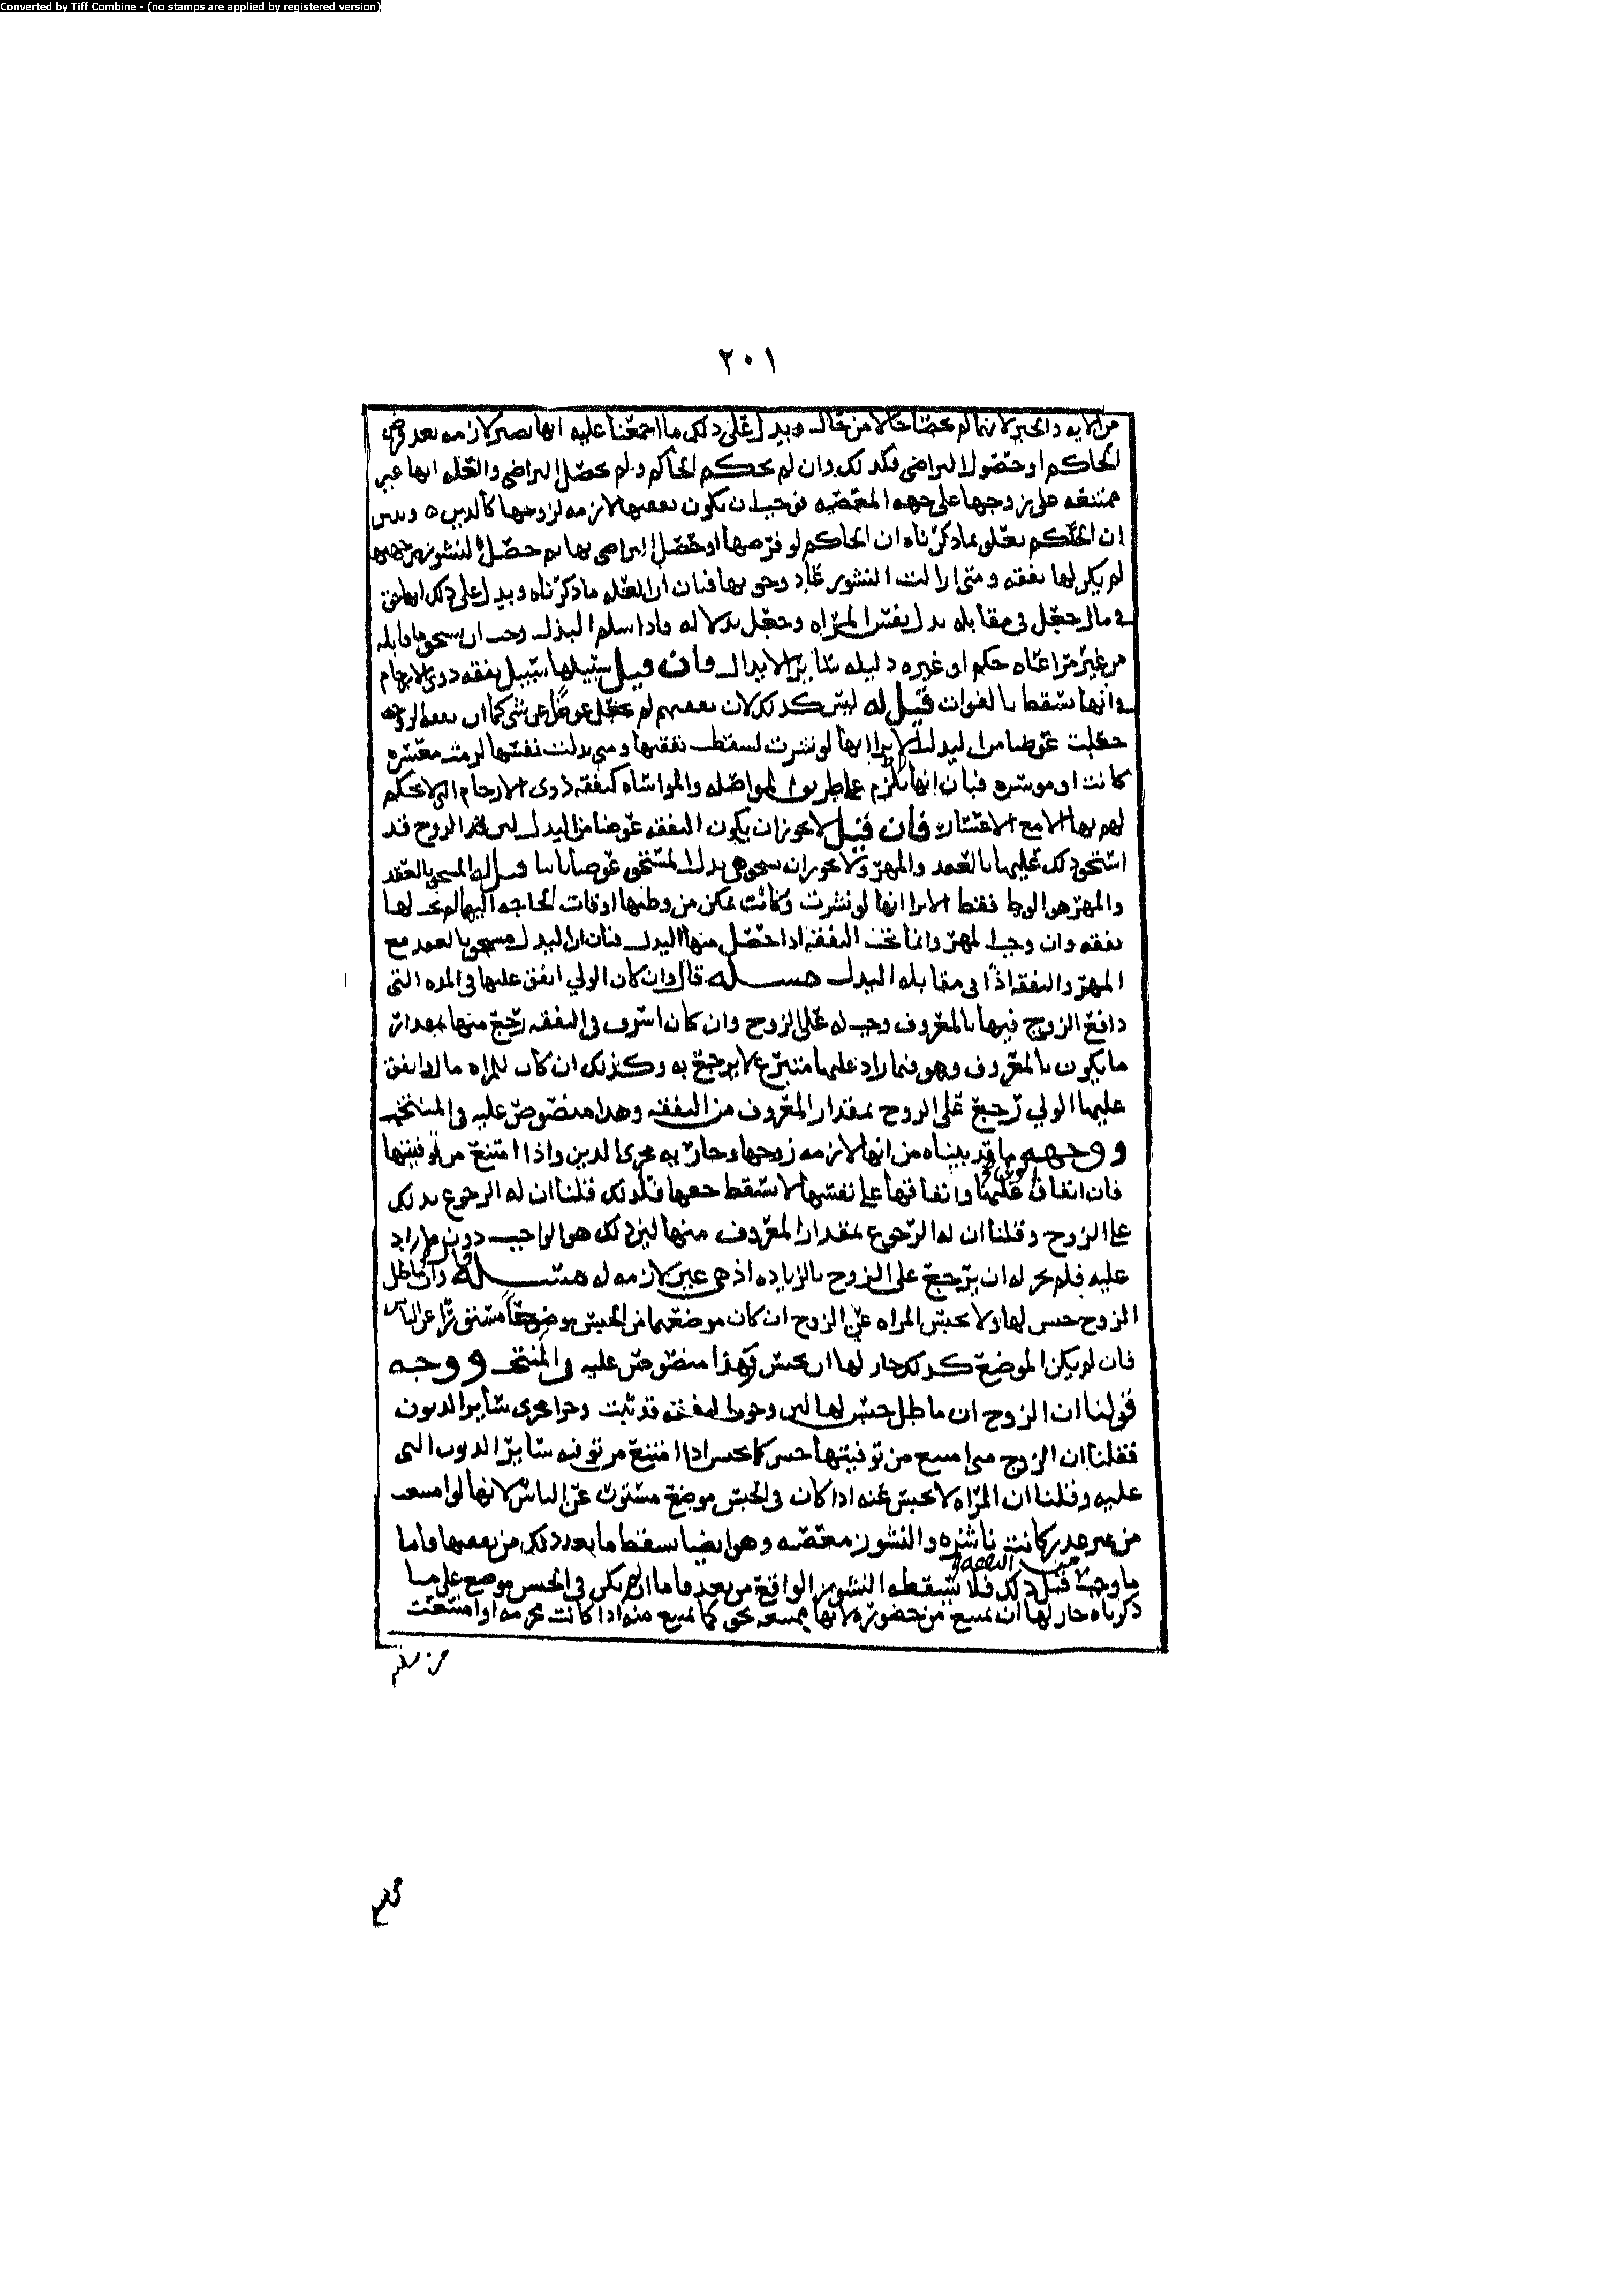 Converted by Tiff Combine - (no stamps are applied by registered version)
٢٠١
من الايه والخبر لانهما لم يخصا حالا من حال ويدل على ذلك ما اجمعنا عليه انها تصير لازمه بعد فرض
الحاكم او حصول التراضي فكذلك وان لم يحكم الحاكم ولم يحصل التراضي والعله انها غير
ممتنعه على زوجها على جهه المعصيه فوجب ان تكون نفقتها لازمه لزوجها كالدين ٥ ويبين
ان الحكم تعلق بما ذكرناه ان الحاكم لو فرضها او حصل التراضي بها ثم حصل النشوز من جهتها
لم يكن لها نفقه ومتى ازالت النشوز عاد وجوبها فبان ان العله ما ذكرناه ويدل على ذلك انها حق
في مال جعل في مقابله بذل نفس المراه وجعل بدلا له واذا سلم البذل وجب ان يستحق ما قابله
من غير مراعاه حكم او غيره دليله سائر الابدال فان قيل سبيلها سبيل نفقه ذوي الارحام
وانها تسقط بالفوات قيل له ليس كذلك لان نفقتهم لم تجعل عوضا عن شي كما ان نفقه الزوجه
جعلت عوضا من البذل الا ترا انها لو نشزت لسقطت نفقتها ومتى بذلت نفسها لزمت معسره
كانت او موسره فبان انها لا تلزم على طريق المواصله والمواساه كنفقه ذوي الارحام التي لا يحكم
لهم بها الا مع الاعسار فان قيل لا يجوز ان يكون النفقه عوضا من البذل لان الزوج قد
استحق ذلك عليها بالعقد والمهر ولا يجوز ان يستحق في بدل المستحق عوضا ثانيا قيل له المستحق بالعقد
والمهر هو الوط فقط الا ترا انها لو نشزت وكانت تمكن من وطئها اوقات الحاجه اليها لم يجب لها
نفقه وان وجب المهر وانما تجب النفقه اذا حصل منها البذل فبان ان البذل مستحق بالعقد مع
المهر والنفقه اذًا في مقابله البذل مسله قال وان كان الولي انفق عليها في المده التي
دافع الزوج فيها بالمعروف وجب له على الزوج وان كان اسرف في النفقه رجع منها بمقدار
ما يكون بالمعروف وهو فيما زاد عليها متبرع لا يرجع به وكذلك ان كان للمراه مال وانفق
عليها الولي رجع على الزوج بمقدار المعروف من النفقه وهذا منصوص عليه في المنتخب
ووجهه ما قد بيناه من انها لازمه زوجها وجاريه مجرى الدين واذا امتنع من توفيتها
فان انفاق الولي عليها وانفاقها على نفسها لا يسقط حقها فلذلك قلنا ان له الرجوع بذلك
على الزوج وقلنا ان له الرجوع بمقدار المعروف منها لان ذلك هو الواجب دون ما زاد
عليه فلم يجز له ان يرجع على الزوج بالزياده اذ هي غير لازمه له مسله قال وان ماطل
الزوج حبس لها ولا تحبس المراه عن الزوج ان كان موضعهما من الحبس موضعا مستترا عن الناس
فان لم يكن الموضع كذلك جاز لها ان تحبس وهذا منصوص عليه في المنتخب ووجه
قولنا ان الزوج ان ماطل حبس لها ان وجوب النفقه قد ثبت وجرا مجرى سائر الديون
فقلنا ان الزوج متى امتنع من توفيتها حبس كما يحبس اذا امتنع من توفيه سائر الديون التي
عليه وقلنا ان المراه لا تحبس عنه اذا كان في الحبس موضع مستور عن الناس لانها لو امتنعت
من غير عذر كانت ناشزه والنشوز معصيه وهو ايضا يسقط ما بعد ذلك من نفقتها واما
ما وجب من النفقه قبل ذلك فلا يسقطه النشوز الواقع من بعد فاما ان لم يكن في الحبس موضع على ما
ذكرناه جاز لها ان تمتنع من حضوره لانها ممتنعه بحق كما تمتنع منه اذا كانت محرمه او امتنعت